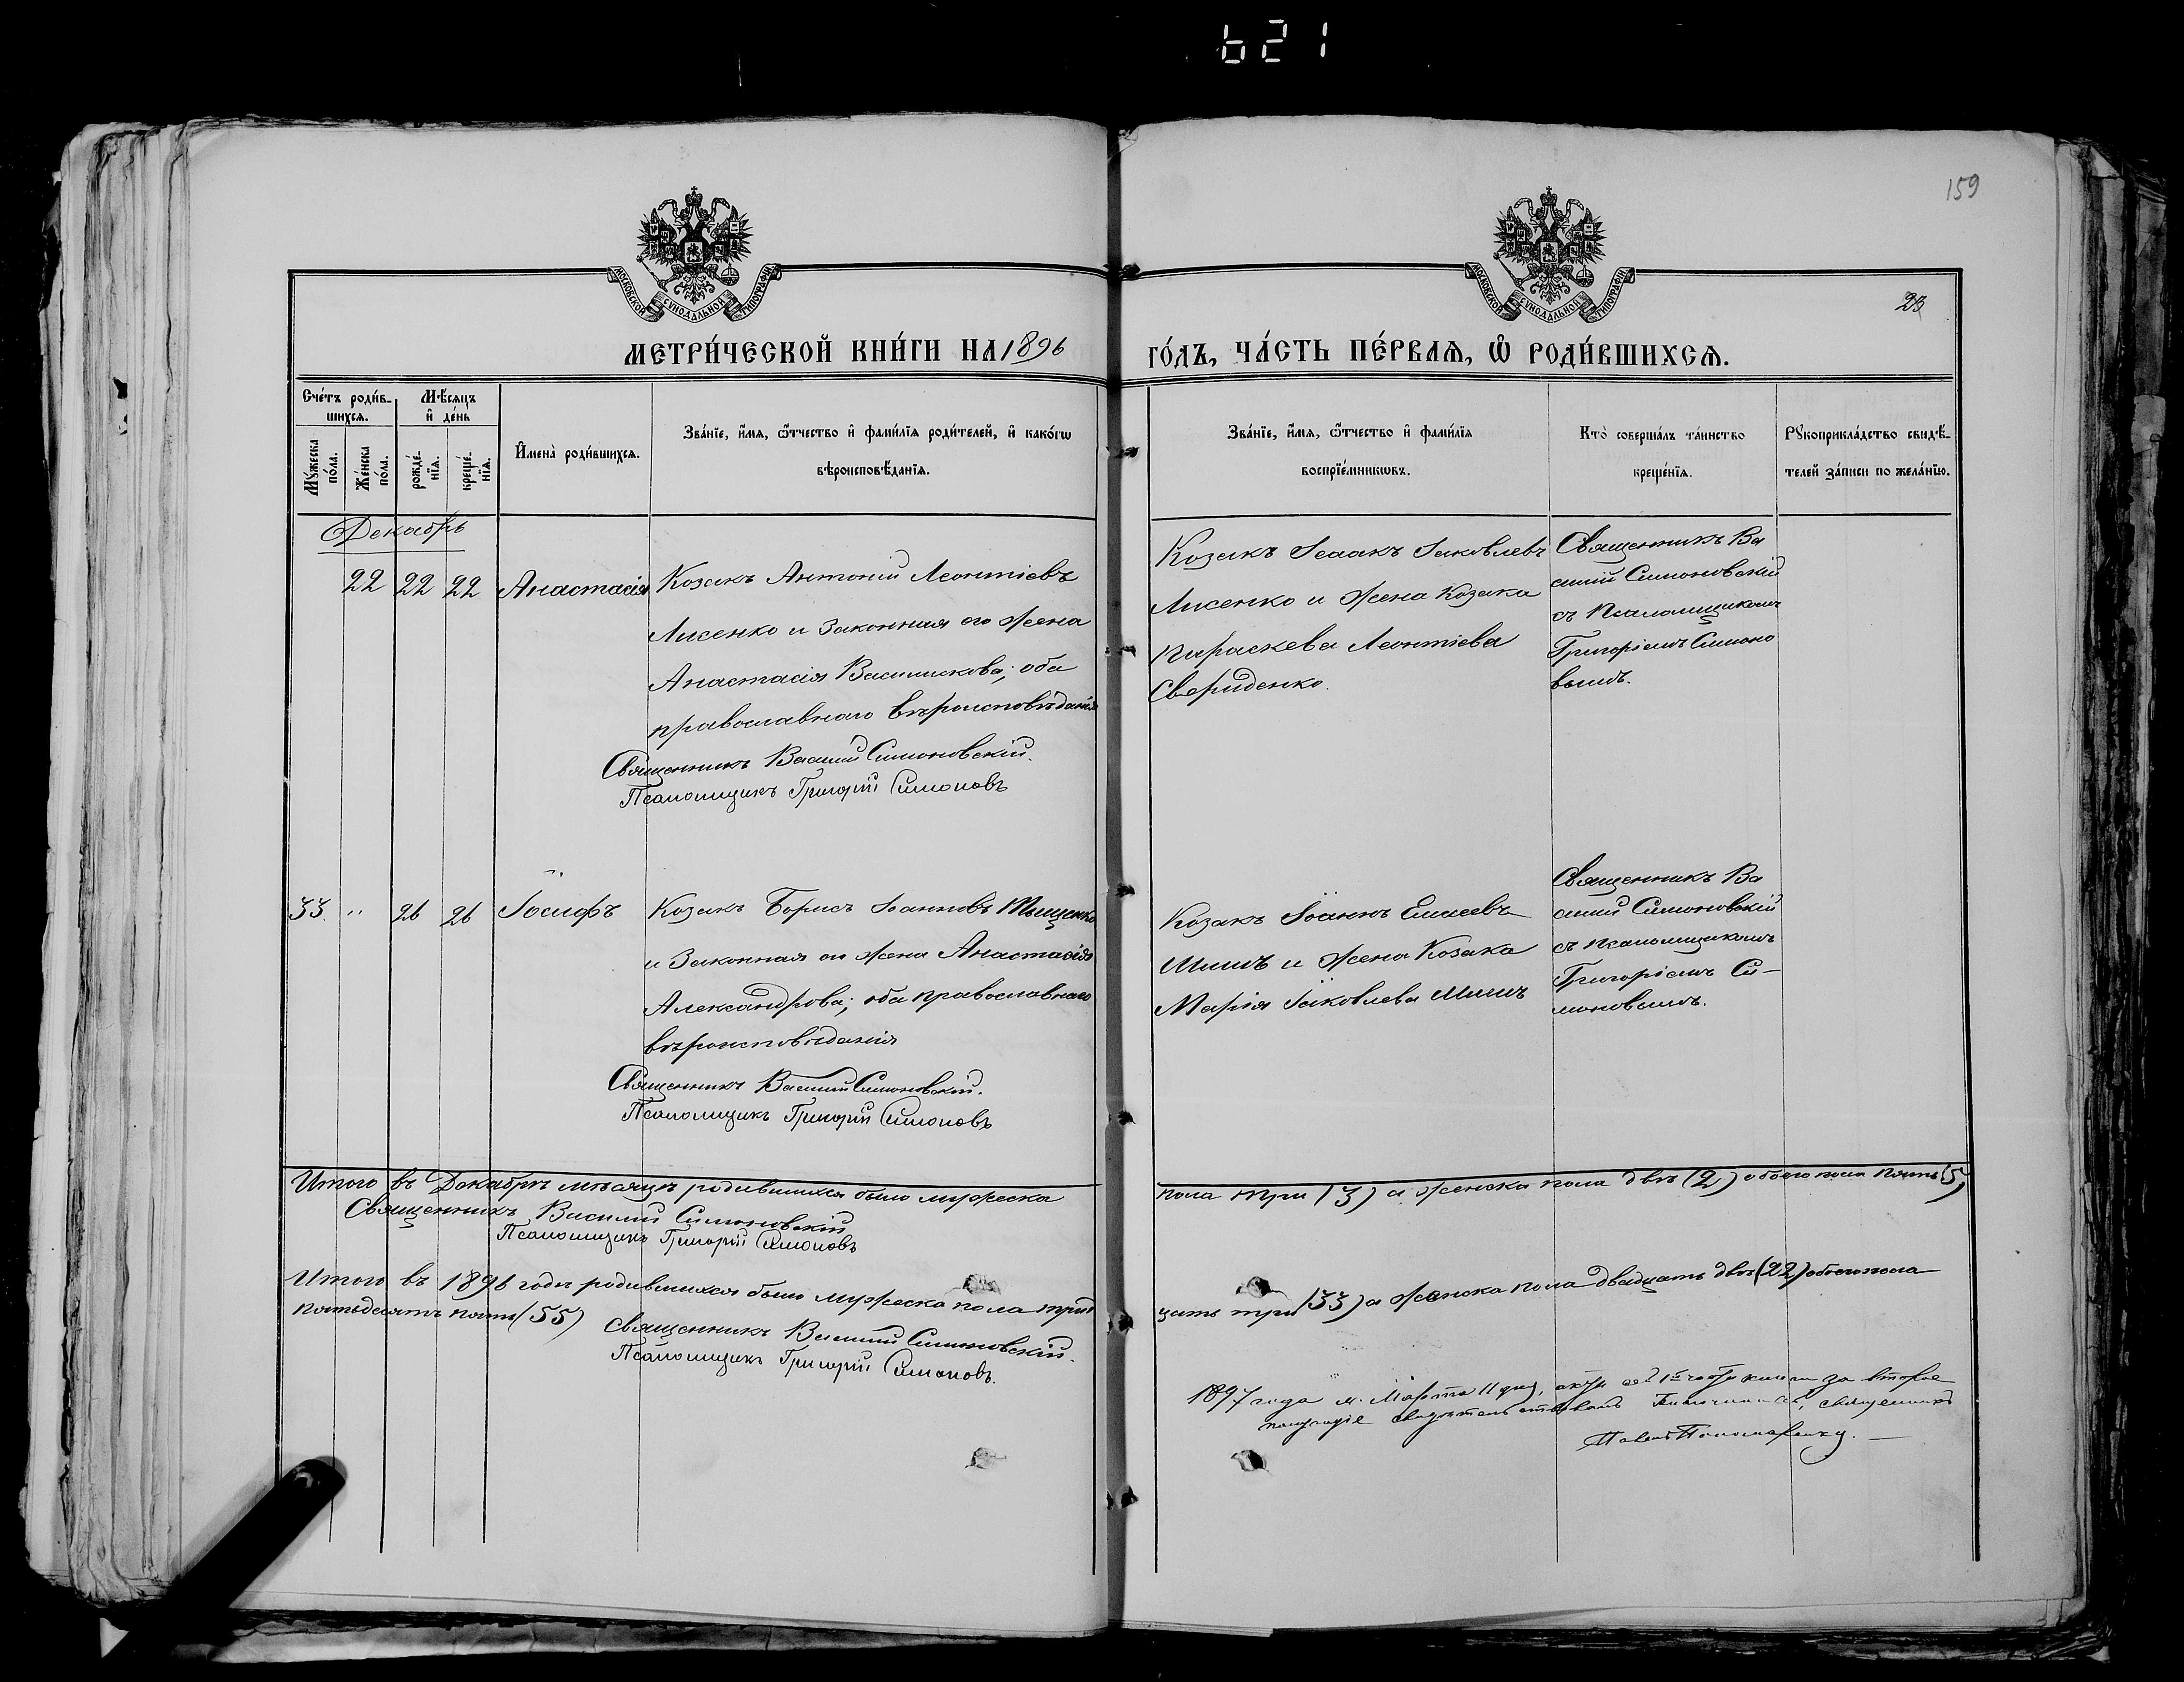 621
159
23
МОСКОВСКОЙ СУНОДАЛЬНОЙ ТИПОГРАФІИ
МОСКОВСКОЙ СУНОДАЛЬНОЙ ТИПОГРАФІИ
МЕТРИ́ЧЕСКОЙ КНИ́ГИ НА 1896
ГО́ДЪ, ЧА́СТЬ ПЕ́РВАЯ, Ѡ҆ РОДИ́ВШИХСЯ.
Сче́тъ роди́в-
шихся.
Мѣ́сяцъ
и҆ де́нь
Мꙋ́жеска
по́ла.
Же́нска
по́ла.
рожде́-
нїя.
креще́-
нїя.
И҆мена̀ роди́вшихся.
Зва́нїе, и҆́мя, ѻ҆́тчество и҆ фами́лїя роди́телей, и҆ како́гѡ
вѣроисповѣ́данїя.
Зва́нїе, и҆́мя, ѻ҆́тчество и҆ фами́лїя
воспрїе́мникѡвъ.
Кто̀ соверша́лъ та́инство
креще́нїя.
Рꙋкоприкла́дство свидѣ́-
телей за́писи по жела́нїю.
Декабрь
22 22 22 Анастасія
Козакъ Антоній Леонтіевъ
Лисенко и законная его жена
Анастасія ; оба
православнаго вѣроисповѣданія
Священникъ Василій Симоновскій.
Псаломщикъ Григорій Симоновъ
Козакъ Исаакъ Іаковлевъ
Лисенко и жена козака
Параскева Леонтіева
Свериденко.
Священникъ Ва
силій Симоновскій
съ Псаломщикомъ
Григоріемъ Симоно
вымъ.
33. " 26 26 Іосифъ
Козакъ Борисъ Іоанновъ Тыщенко
и законная его жена Анастасія
Александрова; оба православнаго
вѣроисповѣданія
Священникъ Василій Симоновскій.
Псаломщикъ Григорій Симоновъ
Козакъ Іоаннъ Елисеевъ
и жена Козака
Марія Іаковлева
Священникъ Ва
силій Симоновскій
съ псаломщикомъ
Григоріемъ Си-
моновымъ.
Итого въ Декабрѣ мѣсяцѣ родившихся было мужеска
пола три (3) а женска пола двѣ (2) обоего пола пять (5)
Священникъ Василій Симоновскій
Псаломщикъ Григорій Симоновъ
Итого въ 1896 годѣ родившихся было мужеска пола трид
цать три (33) а женска пола двадцать двѣ (22) обоего пола
пятьдесятъ пять (55)
Священникъ Василій Симоновскій.
Псаломщикъ Григорій Симоновъ.
1897 года м. Марта 11 дня, сей 1й части книги за второе
полугодіе свидѣтельствовалъ священникъ
Павелъ Пономаренко.